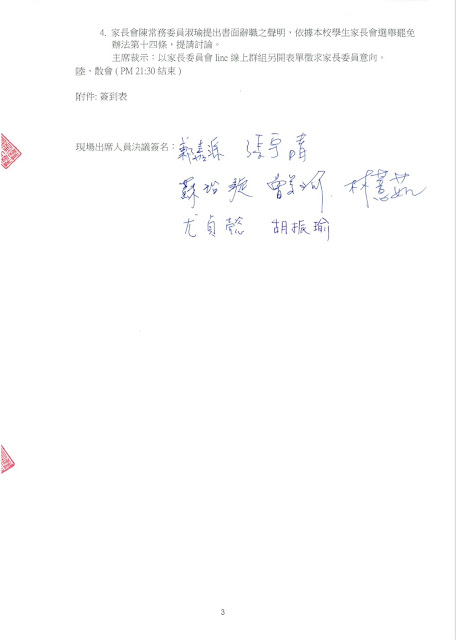 4. 家長會陳常務委員淑瑜提出書面辭職之聲明，依據本校學生家長會選舉罷免
辦法第十四條，提請討論。
主席裁示：以家長委員會 line 線上群組另開表單徵求家長委員意向。
陸、散會 ( PM 21:30 結束 )
附件: 簽到表
現場出席人員決議簽名：
林蕙茹
尤貞懿 胡振瑜
3